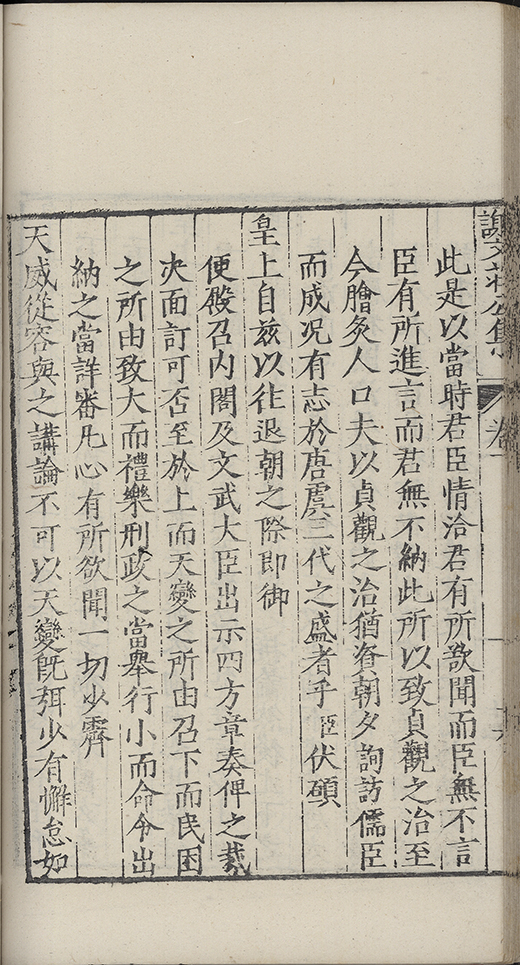 謝文莊公集
卷一
此是以當時君臣情洽君有所欲聞而臣無不言
臣有所進言而君無不納此所以致貞觀之治至
今膾炙人口夫以貞觀之治猶資朝夕詢訪儒臣
而成况有志於唐虞三代之盛者乎臣伏願
皇上自兹以往退朝之際即御
便殿召内閣及文武大臣出示四方章奏俾之裁
决面訂可否至於上而天變之所由召下而民困
之所由致大而禮樂刑政之當舉行小而命令出
納之當詳審凡心有所欲聞一切少霽
天威從容與之講論不可以天變既弭少有懈怠如